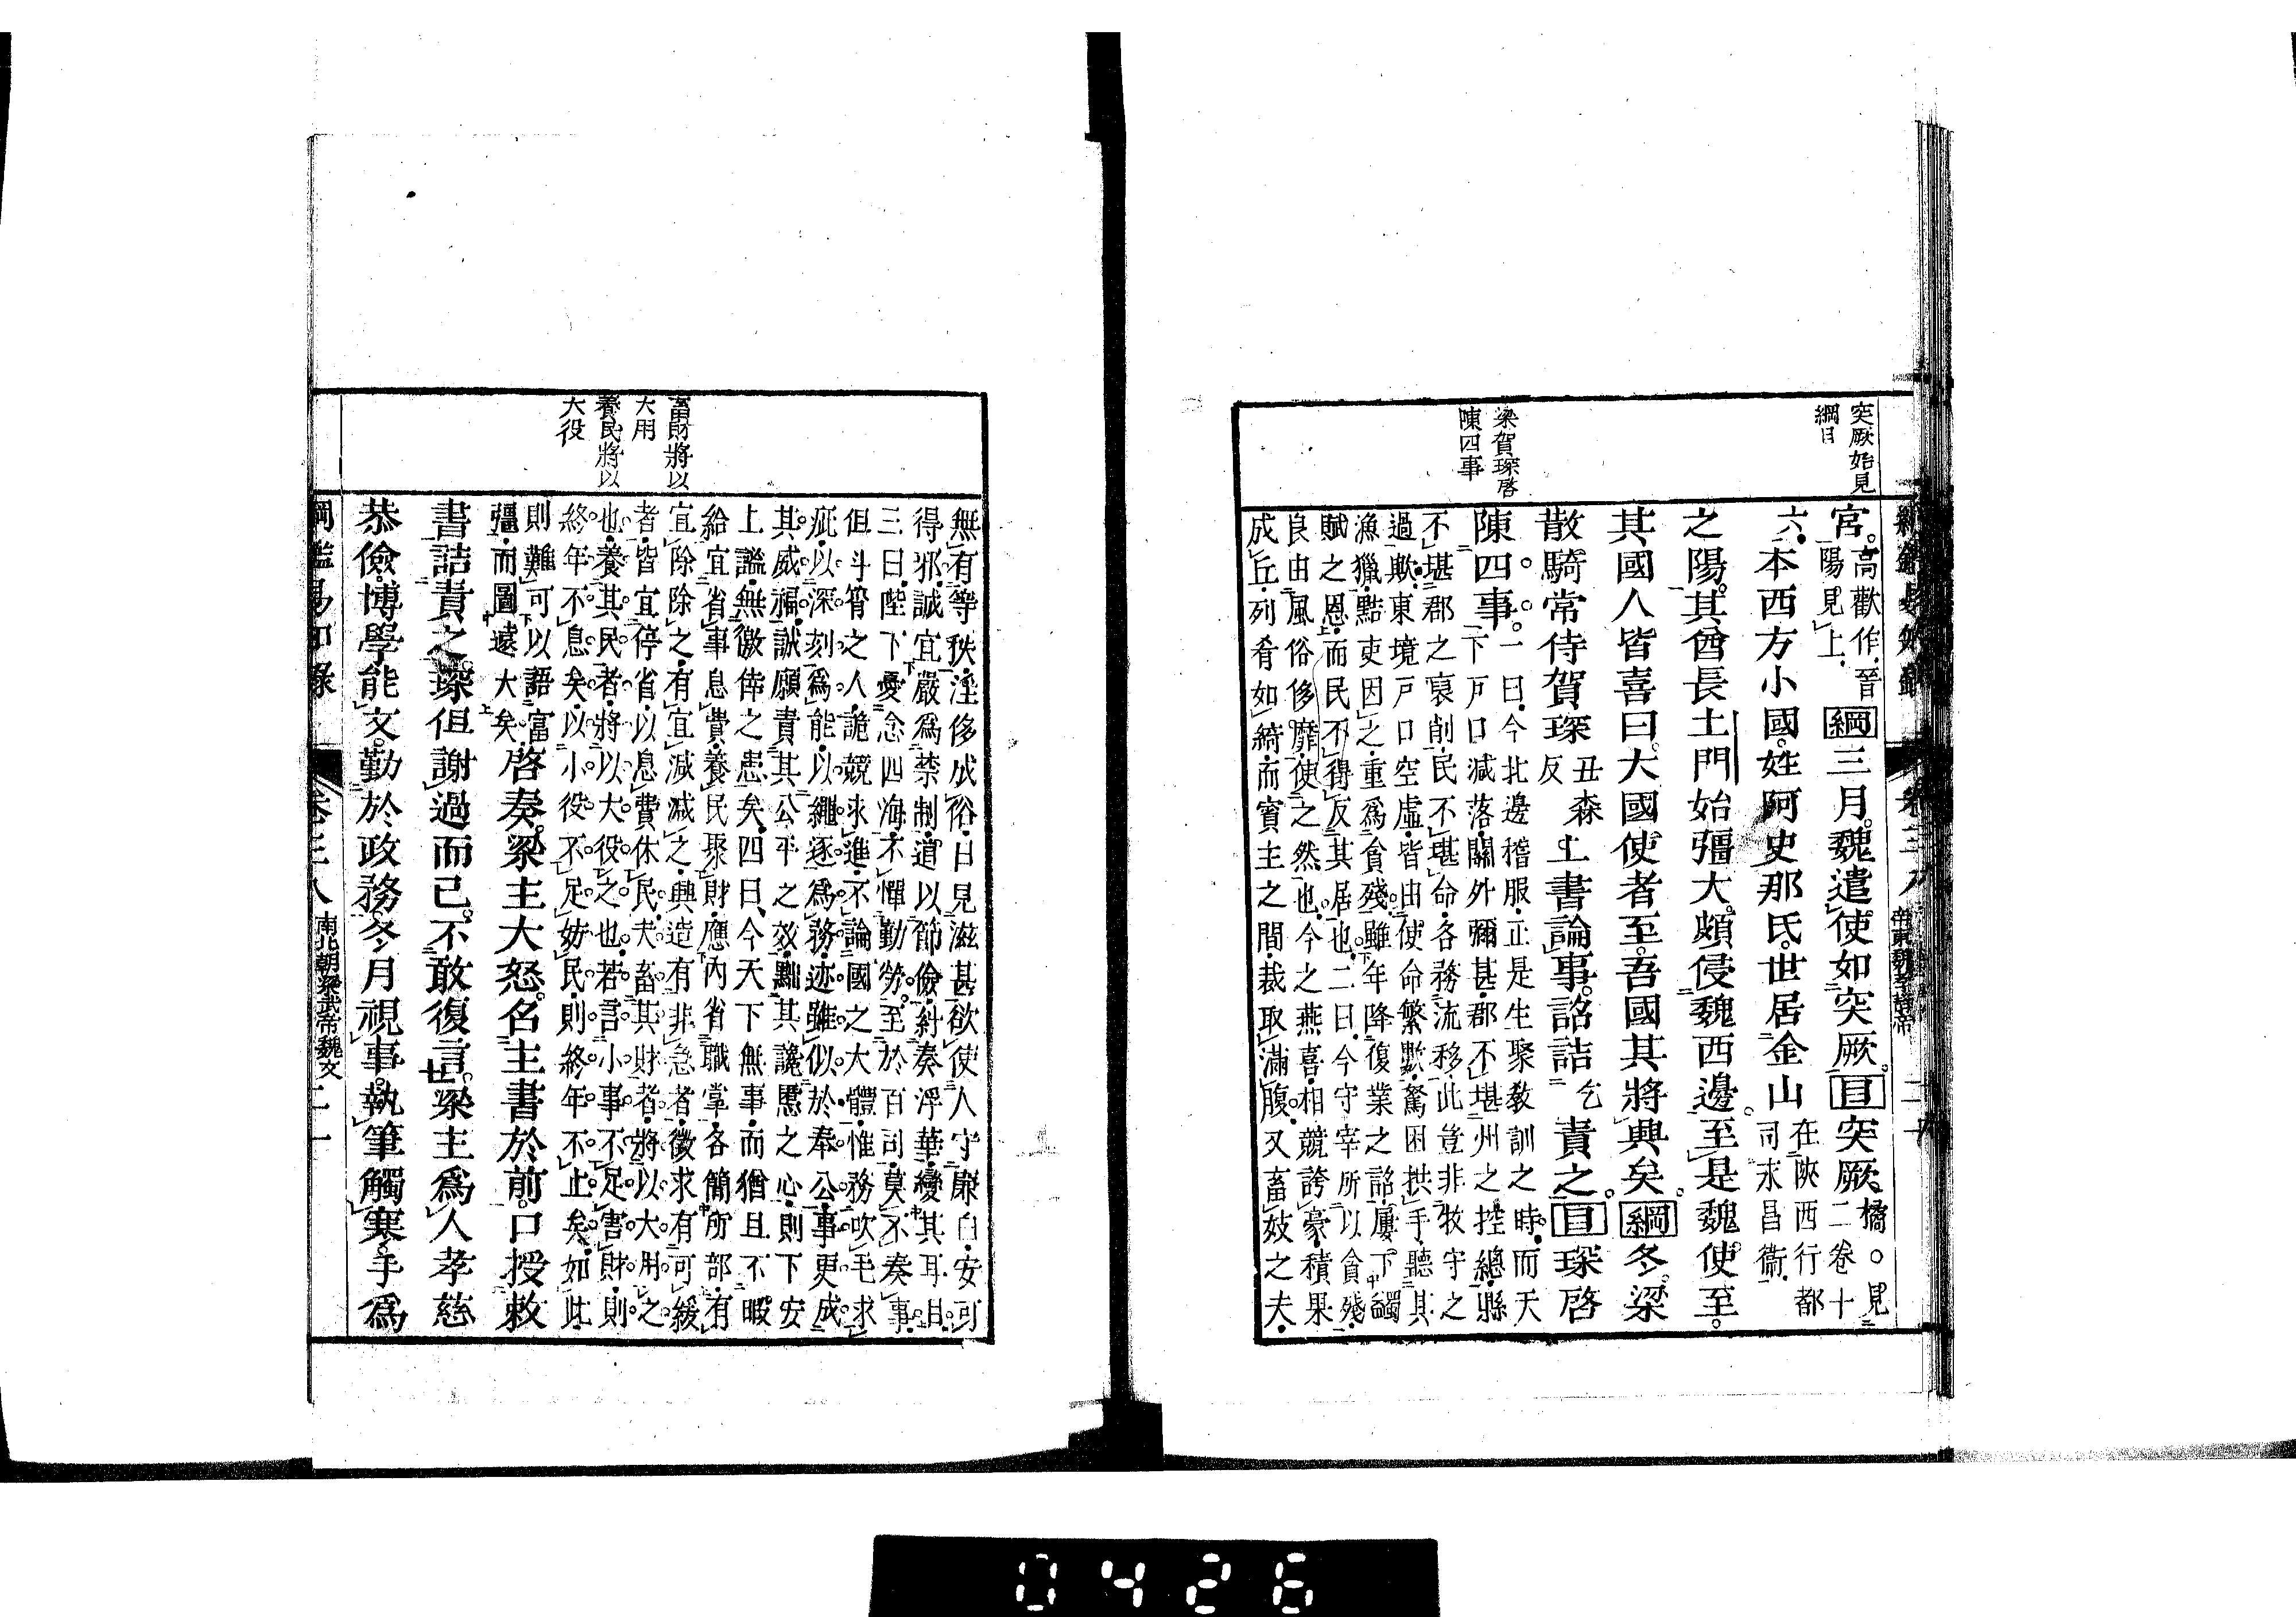 突厥始見
綱目
梁賀琛啓
陳四事
宮。高歡作，晉
陽。見上。
綱三月。魏遣使如突厥。目突厥。橘。○見
二卷十
六。本西方小國。姓阿史那氏。世居金山在陝西行都
司永昌衞。
之陽。其酋長土門始彊大。頗侵魏西邊。至是魏使至。
其國人皆喜曰。大國使者至。吾國其將興矣。綱冬。梁
散騎常侍賀琛丑森
反上書論事。詔詰乞責之。目琛啓
陳四事。一曰。今北邊稽服。正是生聚敎訓之時。而天
下戸口減落。關外彌甚。郡不堪州之控總。縣
不堪郡之裒削。民不堪命。各務流移。此豈非牧守之
過歟。東境戸口空虛。皆由使命繁數。駑困拱手。聽其
漁獵。黠吏因之。重爲貪殘。雖年降復業之詔。屢下蠲
賦之恩。而民不得反其居也。二曰。今守宰所以貪殘。
良由風俗侈靡。使之然也。今之燕喜。相競誇豪。積果
成丘。列肴如綺。而賓主之間。裁取滿腹。又畜妓之夫。
畜財將以
大用
養民將以
大役
無有等秩。淫侈成俗。日見滋甚。欲使人守廉白。安可
得邪。誠宜嚴爲禁制。道以節儉。糾奏浮華。變其耳目。
三曰。陛下憂念四海。不憚勤勞。至於百司。莫不奏事。
但斗筲之人。詭競求進。不論國之大體。惟務吹毛求
疵。以深刻爲能。以繩逐爲務。迹雖似於奉公。事更成
其威福。誠願責其公平之效。黜其讒慝之心。則下安
上謐。無徼倖之患矣。四曰。今天下無事。而猶且不暇
給。宜省事息費。養民聚財。應內省職掌。各簡所部。有
宜除除之。有宜減減之。興造有非急者。徵求有可緩
者。皆宜停省。以息費休民。夫畜其財者。將以大用之
也。養其民者。將以大役之也。若言小事不足害財。則
終年不息矣。以小役不足妨民。則終年不止矣。如此。
則難可以語富
彊。而圖遠大矣。啓奏。梁主大怒。召主書於前。口授敕
書詰責之。琛但謝過而已。不敢復言。梁主爲人孝慈
恭儉。博學能文。勤於政務。冬月視事。執筆觸寒。手爲
綱鑑易知錄
卷三八
南北朝梁武帝魏文
二一